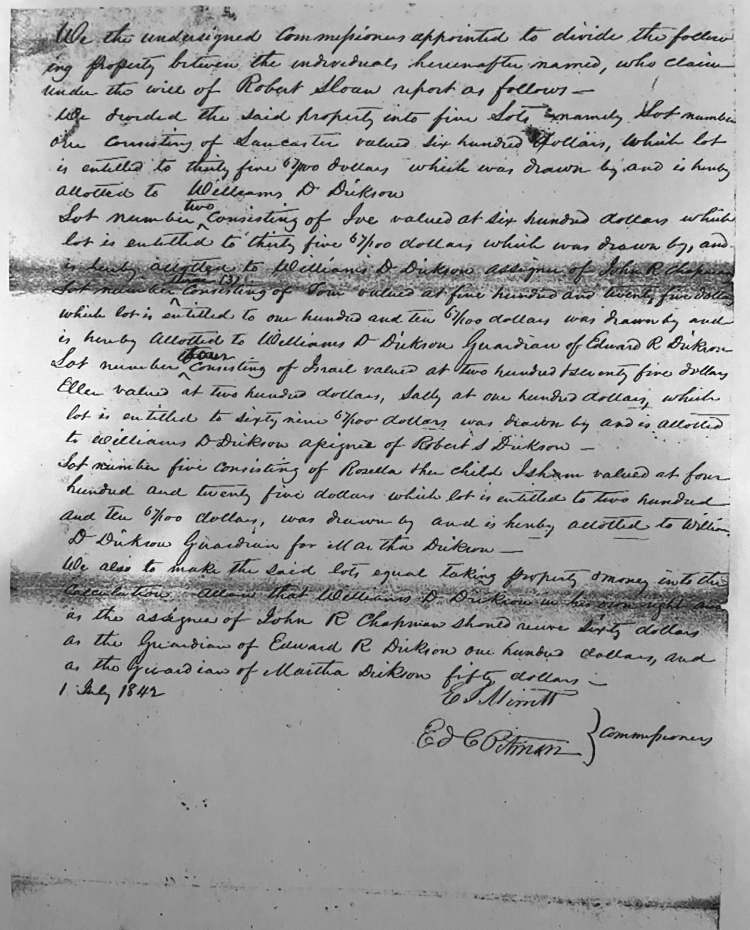 We the undersigned Commissioners appointed to divide the follow
ing property between the individuals hereinafter named, who claim
under the will of Robert Sloan report as follows —
We divided the said property into five Lots namely Lot number
one Consisting of Lancaster valued six hundred dollars, which lot
is entitled to thirty five 67/100 dollars which was drawn by and is hereby
allotted to Williams D Dickson
Lot number two Consisting of Ive valued at six hundred dollars which
lot is entitled to thirty five 67/100 dollars which was drawn by, and
is hereby allotted to Williams D Dickson assignee of John R Chapman
Lot number Consisting of Tom valued at five hundred and twenty five dollars
which lot is entitled to one hundred and ten 67/100 dollars was drawn by and
is hereby allotted to Williams D Dickson Guardian of Edward R Dickson
Lot number four Consisting of Israel valued at two hundred & seventy five dollars
Ellen valued at two hundred dollars, Sally at one hundred dollars, which
lot is entitled to sixty nine 67/100 dollars was drawn by and is allotted
to Williams D Dickson assignee of Robert S Dickson —
Lot number five Consisting of Rosella & her child Isham valued at four
hundred and twenty five dollars which lot is entitled to two hundred
and ten 67/100 dollars, was drawn by and is hereby allotted to William
D Dickson Guardian for Martha Dickson —
We also to make the said lots equal taking property & money into the
Calculation that Williams D Dickson in his own right and
as the assignee of John R Chapman should receive sixty dollars
as the Guardian of Edward R Dickson one hundred dollars, and
as the Guardian of Martha Dickson fifty dollars —
1 July 1842
E J Mirritt
Ed C Pitman } Commissioners